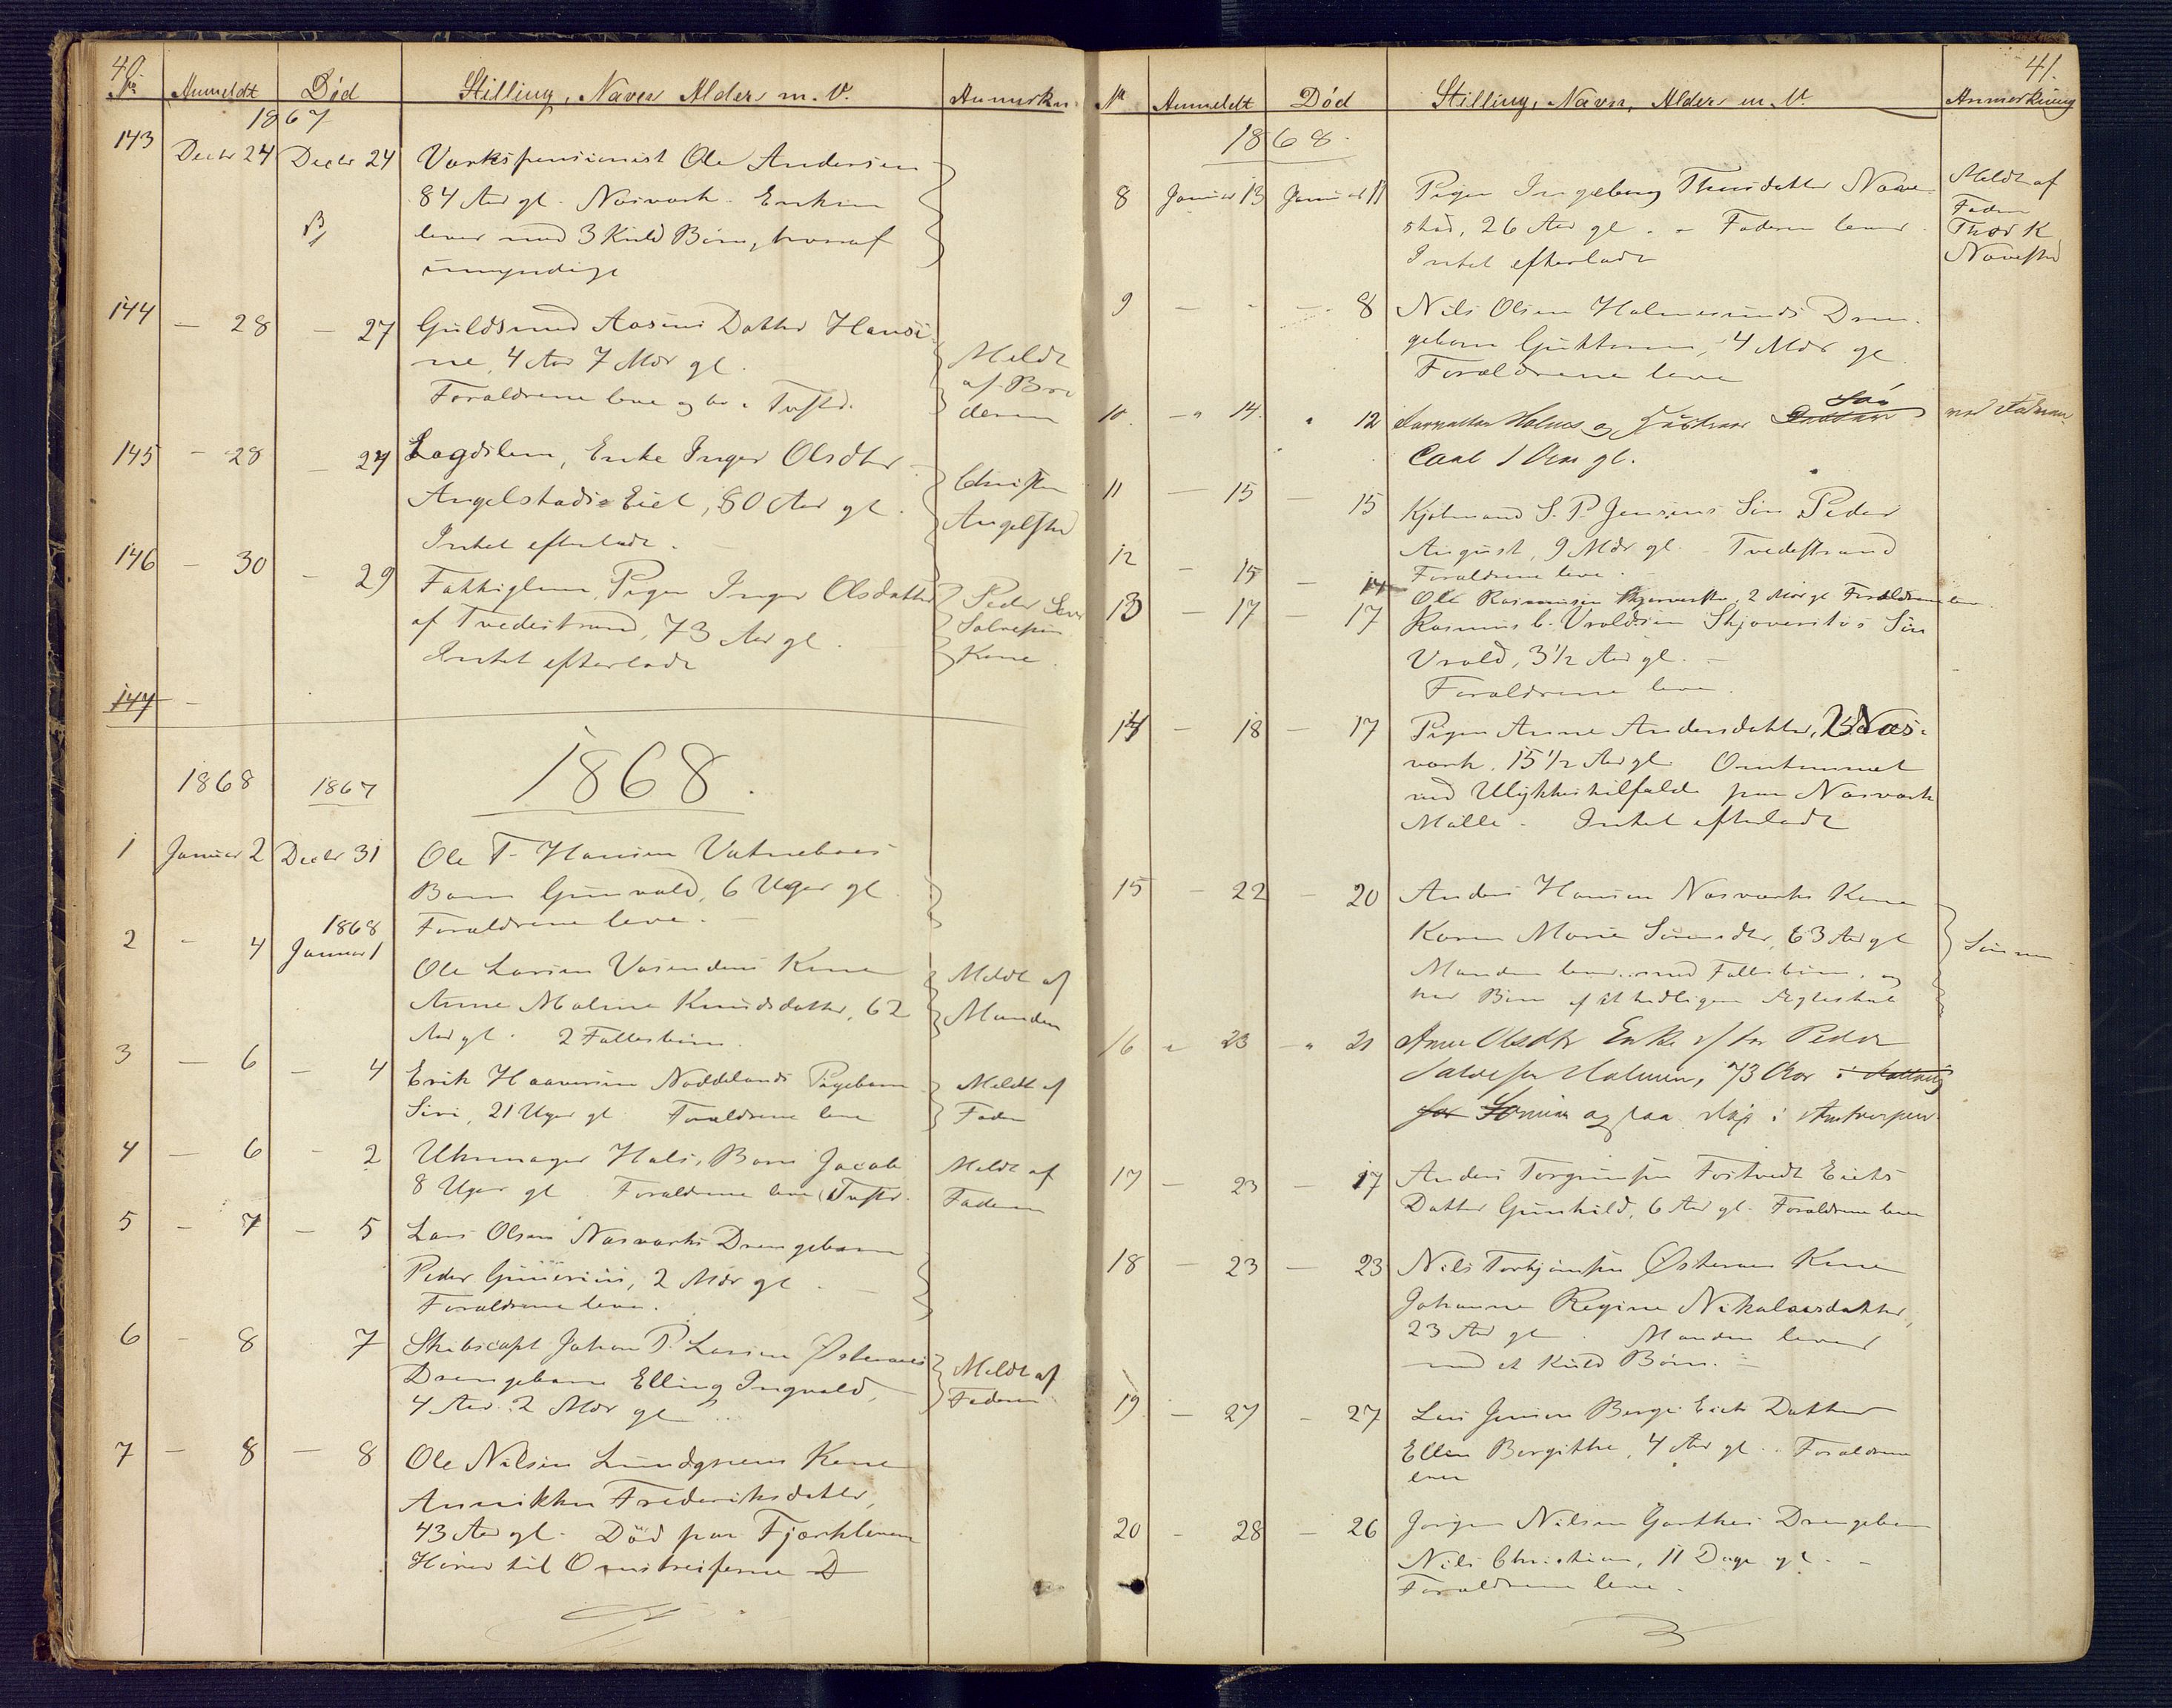 40.
No Anmeldt Død Stilling, Navn Alder m. V. Anmerkn.
1867
143 Decbr 24 Decbr 24 Værkspensionist Ole Andersen
84 Aar gl. Næsværk. Enken
lever med 3 Kuld Børn, hvoraf
umyndige
144 — 28 — 27 Guldsmed Aasens Datter Hansi-
ne, 4 Aar 7 Mdr gl.
Forældrene leve og bo i Tvestr.
Meldt
af Bro
deren
145 — 28 — 27 Lægdslem, Enke Inger Olsdtr
Angelstads Eiet, 80 Aar gl.
Intet efterladt.
Christen
Angelstad
146 — 30 — 29 Fattiglem, Pigen Inger Olsdatter
af Tvedestrand, 73 Aar gl.
Intet efterladt
Peder
Salvesens
Kone.
147 —
1868.
1868 1867
1 Januar 2 Decbr 31 Ole T. Hansen Vatnebues
Barn Gunvald, 6 Uger gl
Forældrene leve.
1868
2 — 4 Januar 1 Ole Larsen Vasendens Kone
Anne Maline Knudsdatter, 62
Aar gl. 2 Fællesbørn.
Meldt af
Manden
3 — 6 — 4 Erik Haaversen Noddelands Pigebarn
Siri, 21 Uger gl. Forældrene leve
Meldt af
Fader
4 — 6 — 2 Uhrmager Hals, Barn Jacob
8 Uger gl. Forældrene leve, Tvestr.
Meldt af
Faderen
5 — 7 — 5 Lars Olsen Næsværks Drengebarn
Peder Gunerius, 2 Mdr gl.
Forældrene leve.
6 — 8 7 Skibscapt Johan P. Larsen Østeraaes
Drengebarn Elling Ingvald,
4 Aar 2 Mdr gl
Meldt af
Faderen
7 — 8 — 8 Ole Nilsen Lundgrens Kone
Annikken Frederiksdatter,
43 Aar gl. Død paa Fjærkleven
Hører til Omstreiferne
41.
No Anmeldt Død Stilling, Navn, Alder m. V. Anmerkning
1868.
8 Januar 13 Januar 11 Pigen Ingeborg Thorsdatter Nave-
stad, 26 Aar gl. – Faderen lever
Intet efterladt
Meldt af
Fader
Thor K
Navestad
9 — - — 8 Nils Olsen Holmesunds Dren-
gebarn Guttorm, 4 Mdr gl
Forældrene leve
10. — „ 14. „ 12 Holmes og Søn
Carl 1 Aar gl.
ved Faderen.
11 — 15 — 15 Kjøbmand S. P. Jensens Søn Peder
August, 9 Mdr gl. – Tvedestrand
Forældrene leve.
12 — 15 — 14 Ole Rasmussen 2 Mdr gl Forældrene leve.
13 — 17 — 17 Rasmus C. Vroldsen Skjoverstøs Søn
Vrold, 3 1/2 Aar gl. –
Forældrene leve.
14 — 18 — 17 Pigen Anne Andersdatter, Næs-
værk, 15 1/2 Aar gl. Omkommet
ved Ulykkestilfælde paa Næsværk
Mølle. Intet efterladt
15 — 22 — 20 Anders Hansen Næsværks Kone
Karen Marie Sørensdtr, 63 Aar gl
Manden lever med Fællesbørn, og
har Børn af et tidligere Ægteskab
Sønnen
16 „ 23 „ 21 Anne Olsdtr Enke efter Peder
Salvesen Holmen, 73 Aar i
for Sønnen og paa Skip i Antverpen
17 — 23 — 17 Anders Torgrimsen Fostvedt Eiets
Datter Gunhild, 6 Aar gl. Forældrene leve
18 — 23 — 23 Nils Torbjørnsen Østeraaes Kone
Johanne Regine Nikolaisdatter,
23 Aar gl. Manden lever
med et Kuld Børn. –
19 — 27 — 27 Lars Jensen Berge Eiets Datter
Ellen Bergitthe, 4 Aar gl. Forældrene
leve
20 — 28 — 26 Jørgen Nilsen Garthes Drengebarn
Nils Christian, 11 Dage gl. –
Forældrene leve.